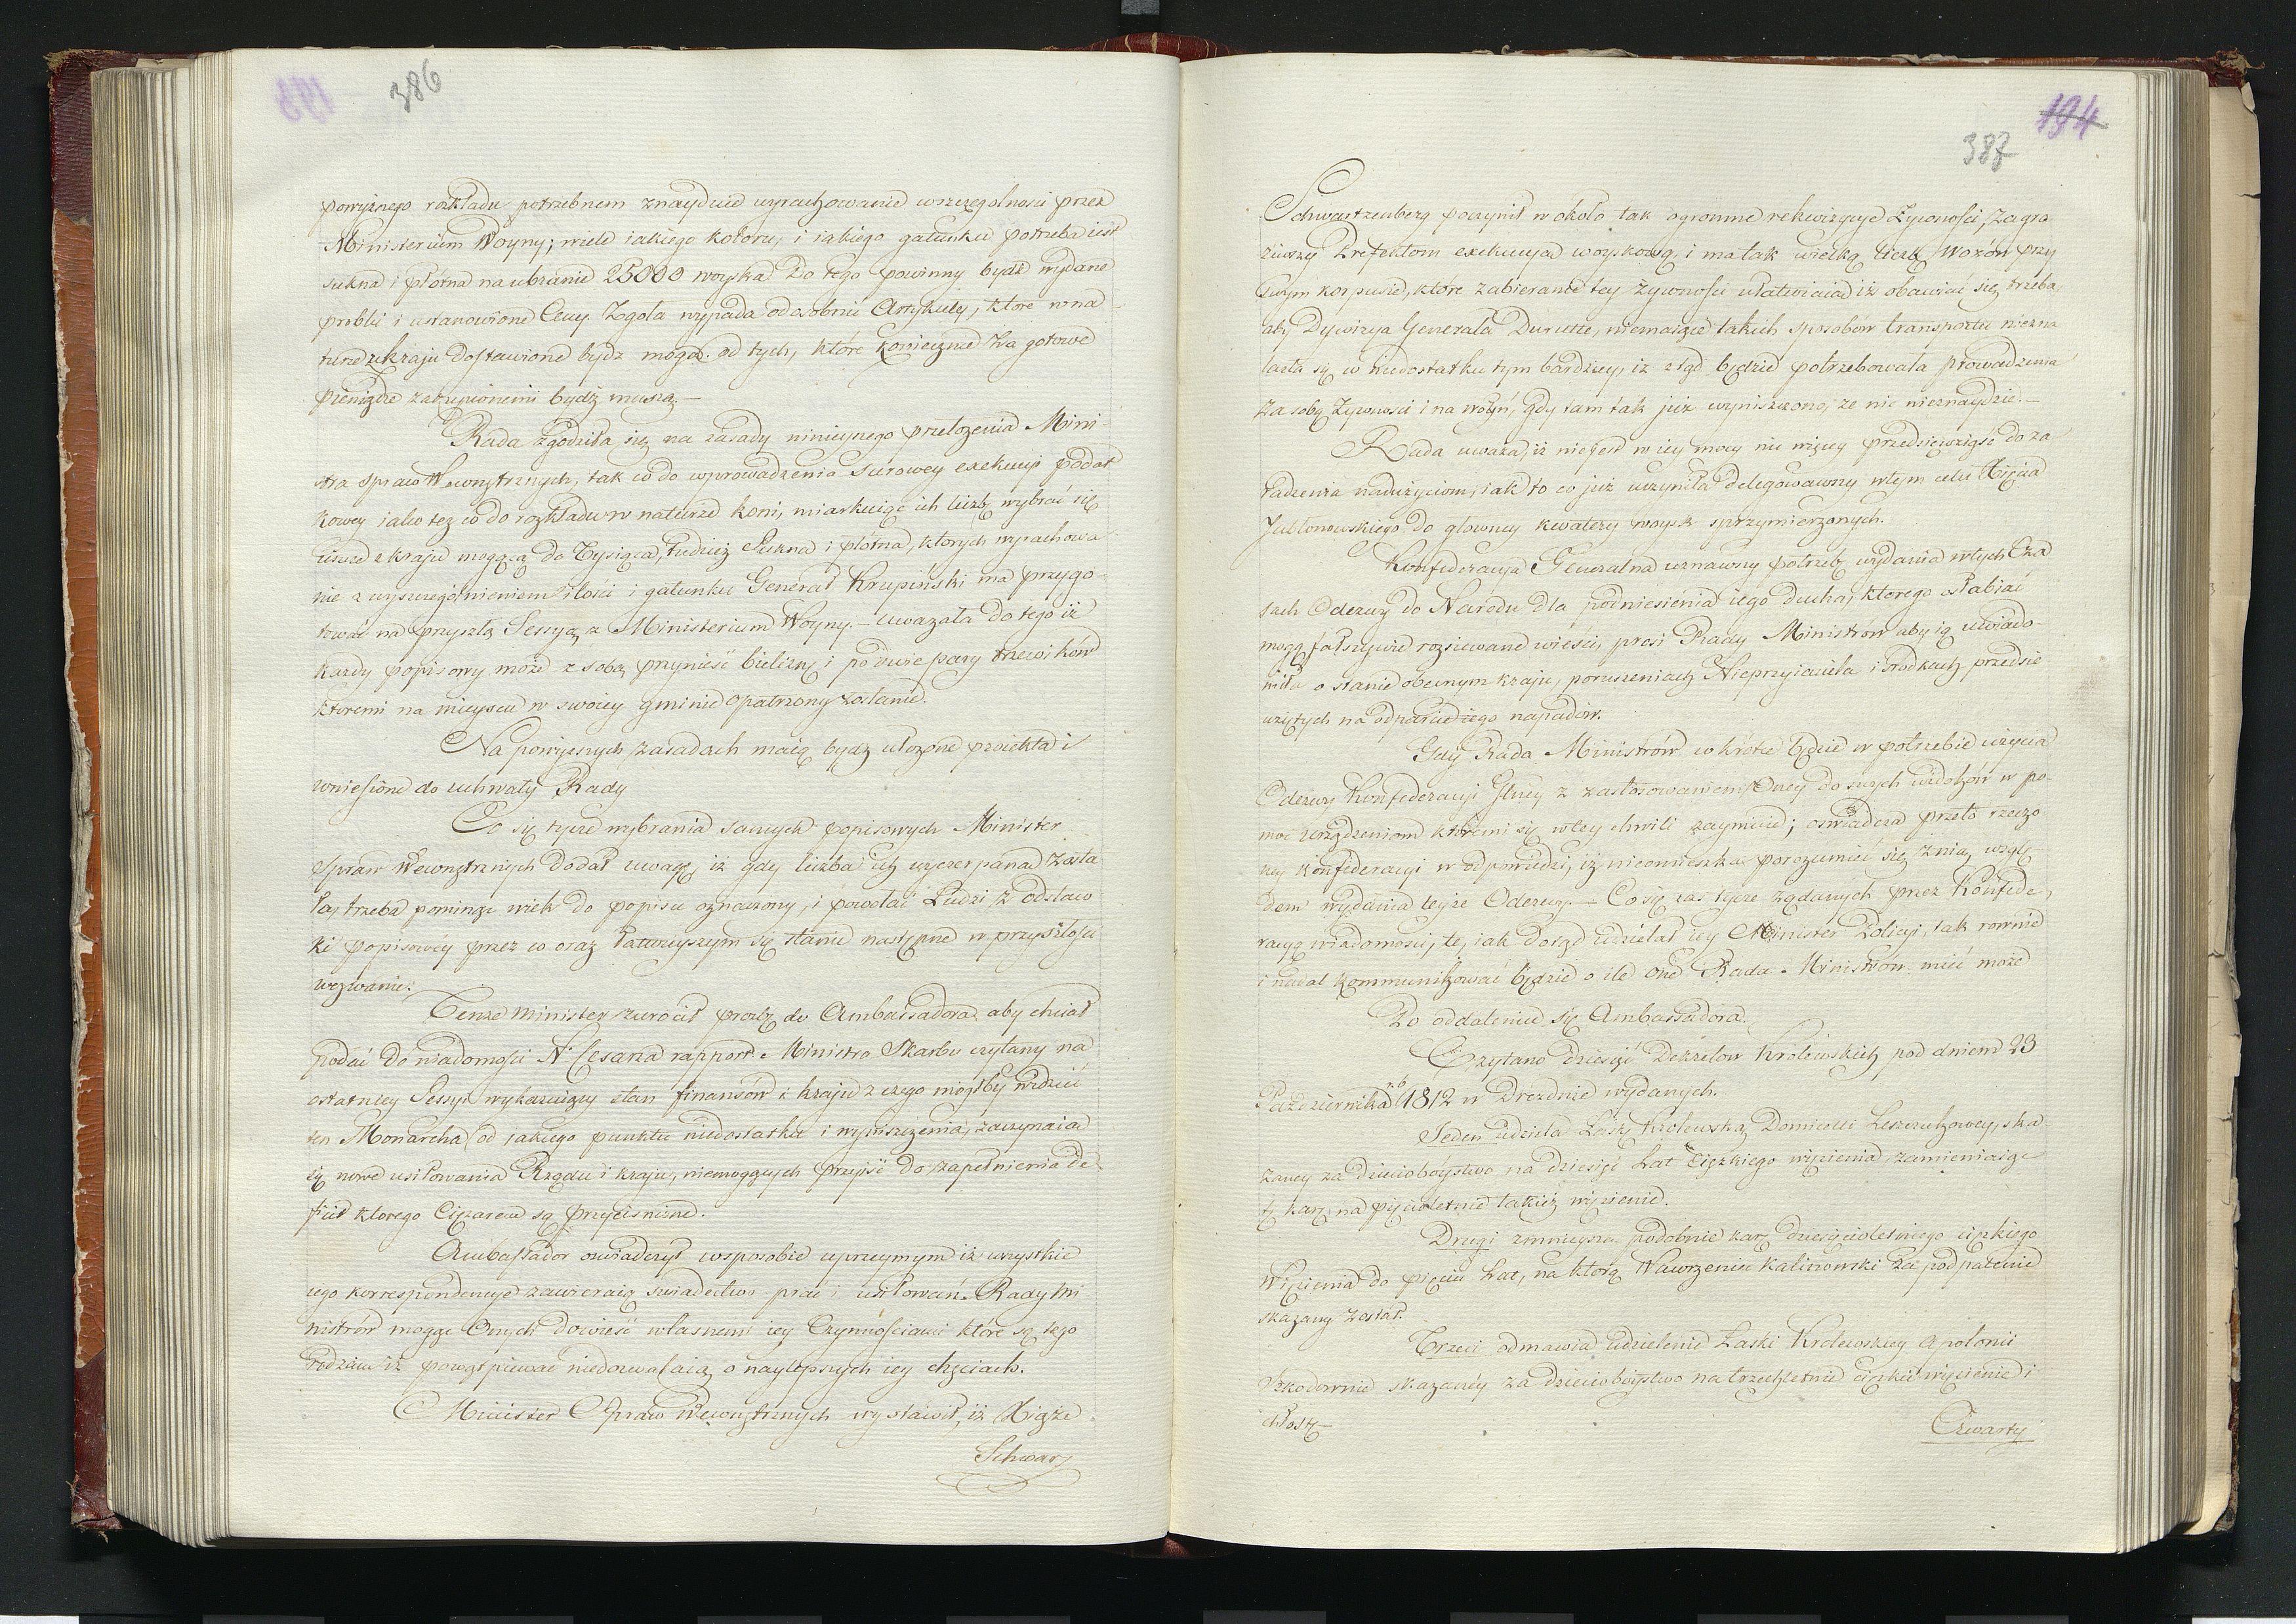 386
powyżnego rozkładu potrzebnem znayduie wyrachowanie wszczegolnosci przez
Ministerium Woyny; wiele iakiego koloru, i iakiego gatunku potrzeba iest
sukna i płótna na ubranie 25000 woyska. Do tego powinny bydź wydane
probki i ustanowione Ceny. Zgoła wypada odosobnić Artykuły, które w na
turze z kraju dostawione bydź mogą od tych, które koniecznie za gotowe
pieniądze zakupionemi bydź muszą.—
Rada zgodziła się na zasady ninieyszego przełożenia Mini
stra spraw Wewnętrznych, tak co do wprowadzenia surowey exekucyi podat
kowey iako też co do rozkładu w naturze koni, miarkuiąc ich liczbę wybrać się
ieszcze z kraju mogącą do Tysiąca, tudzież Sukna i płótna, których wyrachowa
nie z wyszczególnieniem ilości i gatunku Generał Krupiński ma przygo
tować na przyszłą Sessyą z Ministerium Woyny.— uważała do tego iż
każdy popisowy może z sobą przynieść bieliznę i po dwie pary trzewików
któremi na mieyscu w swoiey gminie opatrzony zostanie.
Na powyższych zasadach maią bydź ułożone proiekta i
wniesione do uchwały Rady
Co się tycze wybrania samych popisowych Minister
Spraw Wewnętrznych dodał uwagę, iż gdy liczba ich wyczerpana zosta
ła, trzeba pominąć wiek do popisu oznaczony, i powołać Ludzi z odstaw
ki popisowey przez co oraz łatwieyszym się stanie następne w przyszłości
wezwanie.
Tenże Minister zwrócił prośbę do Ambassadora aby chciał
podać do wiadomości N. Cesarza rapport Ministra Skarbu czytany na
ostatniey Sessyi wykazuiący stan finansów i kraju z czego mógłby widzieć
ten Monarcha od iakiego punktu niedostatku i wyniszczenia, zaczynaią
się nowe usiłowania Rządu i kraju, niemogących przyiść do zapełnienia de
ficit którego Ciężarem są przyciśnione.
Ambassador oświadczył wsposobie uprzeymym iż wszystkie
iego korrespondencye zawieraią świadectwo prac i usiłowań Rady Mi
nistrów mogąc Onych dowieść własnemi iey Czynnościami które są tego
rodzaiu iż powątpiewać niedozwalaią o naylepszych iey chęciach.
Minister Spraw Wewnętrznych wystawił, iż Xiąże
Schwarz
194
387
Schwartzenberg poczynił w około tak ogromne rekwizycye Żywności, zagra
ziwszy Prefektom exekucyą woyskową, i ma tak wielką liczbę Wozów przy
swym korpusie, które zabieranie tey żywności ułatwiaią iż obawiać się trzeba
aby Dywizya Generała Durutte, niemaiąc takich sposobów transportu niezna
lazła się w niedostatku tym bardziey, iż ztąd będzie potrzebowała prowadzenia
za sobą Żywności i na Wołyń, gdy tam tak już wyniszczono, że nic nieznaydzie.—
Rada uważa, iż nie jest w iey mocy nic więcey przedsięwziąść do za
radzenia nadużyciom, iak to co już uczyniła delegowawszy w tym celu Xięcia
Jabłonowskiego do głowney kwatery woysk sprzymierzonych.
Konfederacya Generalna uznawszy potrzebę wydania w tych Cza
sach Odezwy do Narodu dla podniesienia iego ducha, którego osłabiać
mogą fałszywie rozsiewane wieści, prosi Rady Ministrów aby ią uwiado
miła o stanie obecnym kraju, poruszeniach Nieprzyiaciela i środkach przedsię
wziętych na odparcie iego napadów.
Gdy Rada Ministrów wkrótce będzie w potrzebie użycia
Odezwy Konfederacyi Gney z zastosowaniem Oney do swych widoków w po-
moc urządzeniom któremi się wtey chwili zaymuie; oświadcza przeto rzeczo
ney konfederacyi w odpowiedzi, iż nieomieszka porozumieć się z nią wzglę
dem wydania teyże Odezwy.— Co się zaś tycze żądanych przez Konfede
racyą wiadomości, te, iak dotąd udzielał iey Minister Policyi, tak równie
i nadal kommunikować będzie o ile one Rada Ministrów mieć może
Po oddaleniu się Ambassadora.
Czytano dziesięć Dekretow Królewskich pod dniem 23
Października r. b. 1812 w Dreznie wydanych.
Jeden udziela Łaskę Królewską Domicelli Leszczukowey, ska
zaney za dzieciobóystwo na dziesięć Lat Ciężkiego więzienia zamieniaiąc
tę karę na pięcioletnie takież więzienie.
Drugi zmnieysza podobnie karę dziesięcioletniego ciężkiego
Więzienia do pięciu Lat, na którą Wawrzeniec Kalinowski za podpalenie
skazany został.
Trzeci odmawia udzielenie Łaski Królewskiey Apolonii
Szkodownie skazaney za dzieciobóystwo na trzechletnie ciężkie więzienie i
chłostę.—
Czwarty